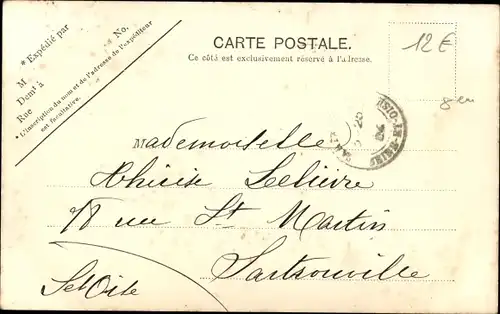 * Expédié par
M No.
Demt à
Rue
* L'inscription du nom et de l'adresse de l'expéditeur
est facultative.
CARTE POSTALE.
Ce côté est exclusivement réservé à l'adresse.
12 €
Mademoiselle
Lelièvre
18 rue St Martin
Sartrouville
Set Oise